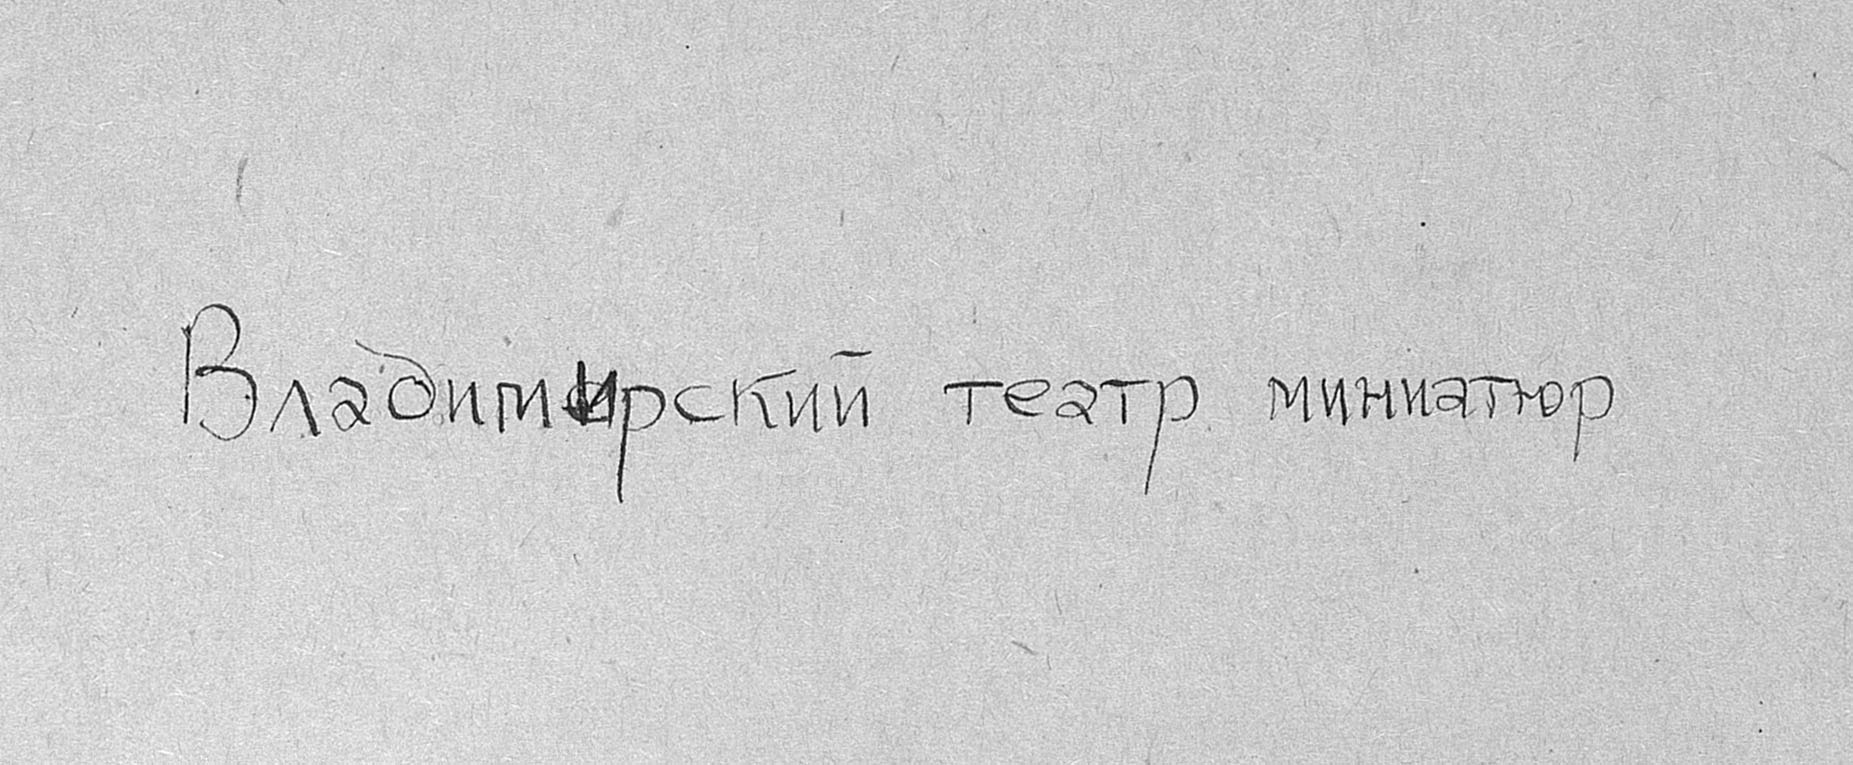 Владимирский театр миниатюр